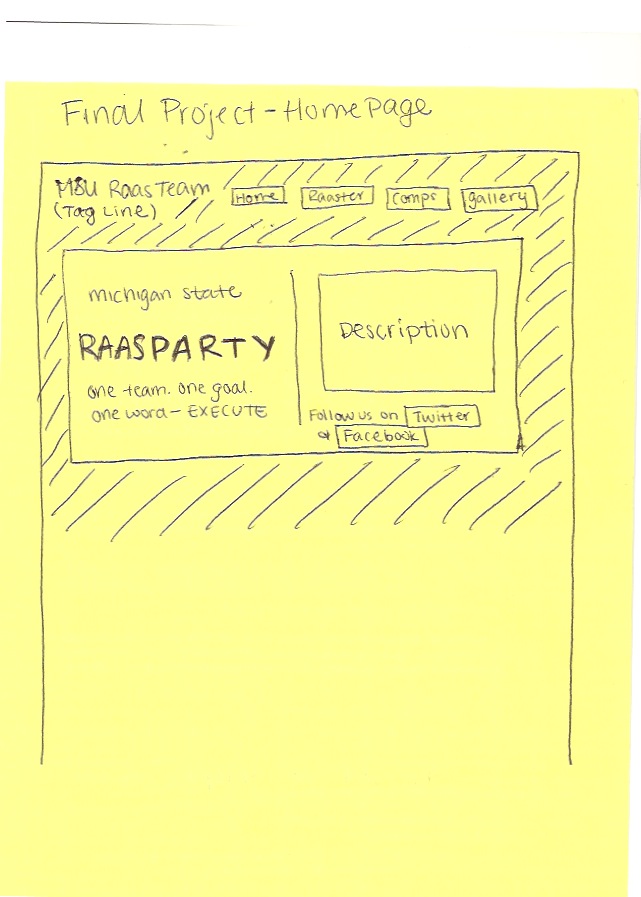 Final Project - HomePage
MSU Raas Team
(Tag Line)
Home
Raaster
Comps
gallery
michigan state
RAASPARTY
one team. one goal.
one word - EXECUTE
Description
Follow us on Twitter
& Facebook